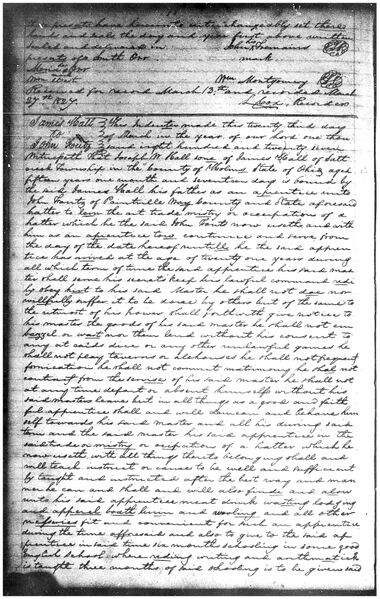 hands and seals the day and year first above written
sealed and delivered in John
mark
Wm West Wm Montgomery
Received for record March 13th and recorded March
27th 1827. L Cox, Recorder
James Hall This Indenture made this twenty third day
to of March in the year of our lord one thou
John Fouty sand eight hundred and twenty seven
Witnesseth that Joseph W Hall sone of James Hall of Salt
creek Township in the county of State of Ohio aged
fifteen years one month and seventeen days is bound by
the said James Hall his father as an aprentice unto
John Fouty of County and State aforesaid
hatter to lern the art trade mistry or occupation of a
hatter which he the said John Fouty now useth and with
him as an aprentice too continue and serve from
the day of the date hereof untill he the said appren
tice has arived at the age of twenty one years during
all which term of time the said apprentice his said mas
ter shall serve his secrets keep his lawful commands redi
ly obey hirt to his said Master he shall not does nor
willfully suffer it to be done by others but of the same to
the utmost of his power shall forthwith give notice to
his master the goods of his said master he shall not em
bezzel or wast nor them lend without his consent to
any at cards dice or any other unlawful games he
shall not play taverns or alehouses he shall not frequent
fornication he shall not commit matrimony he shal not
contract from the servises of his said master he shall not
at any time depart or absent himself without his
said masters leave but in all things as a good and faith
ful apprentice shall and will demean and behave him
self towards his said master and all his during said
term and the said master his said apprentice in the
said trade mistry or ocupation of a hatter which he
now useth with all things thereto belonging shall and
will teach instruct or cause to be well and sufficient
ly taught and instructed after the best way and man
ner he can and shall and will also finde and alow
unto his said apprentice meat drink washing lodging
and apperel boath linnen and wooling and all other
nessesaries fit and convenient for such an apprentice
during the time afforesaid and also to give to the said ap
prentice in said time six month schooling in some good
English school where reding writing and arithmatick
is taught three months of said schooling is to be given said